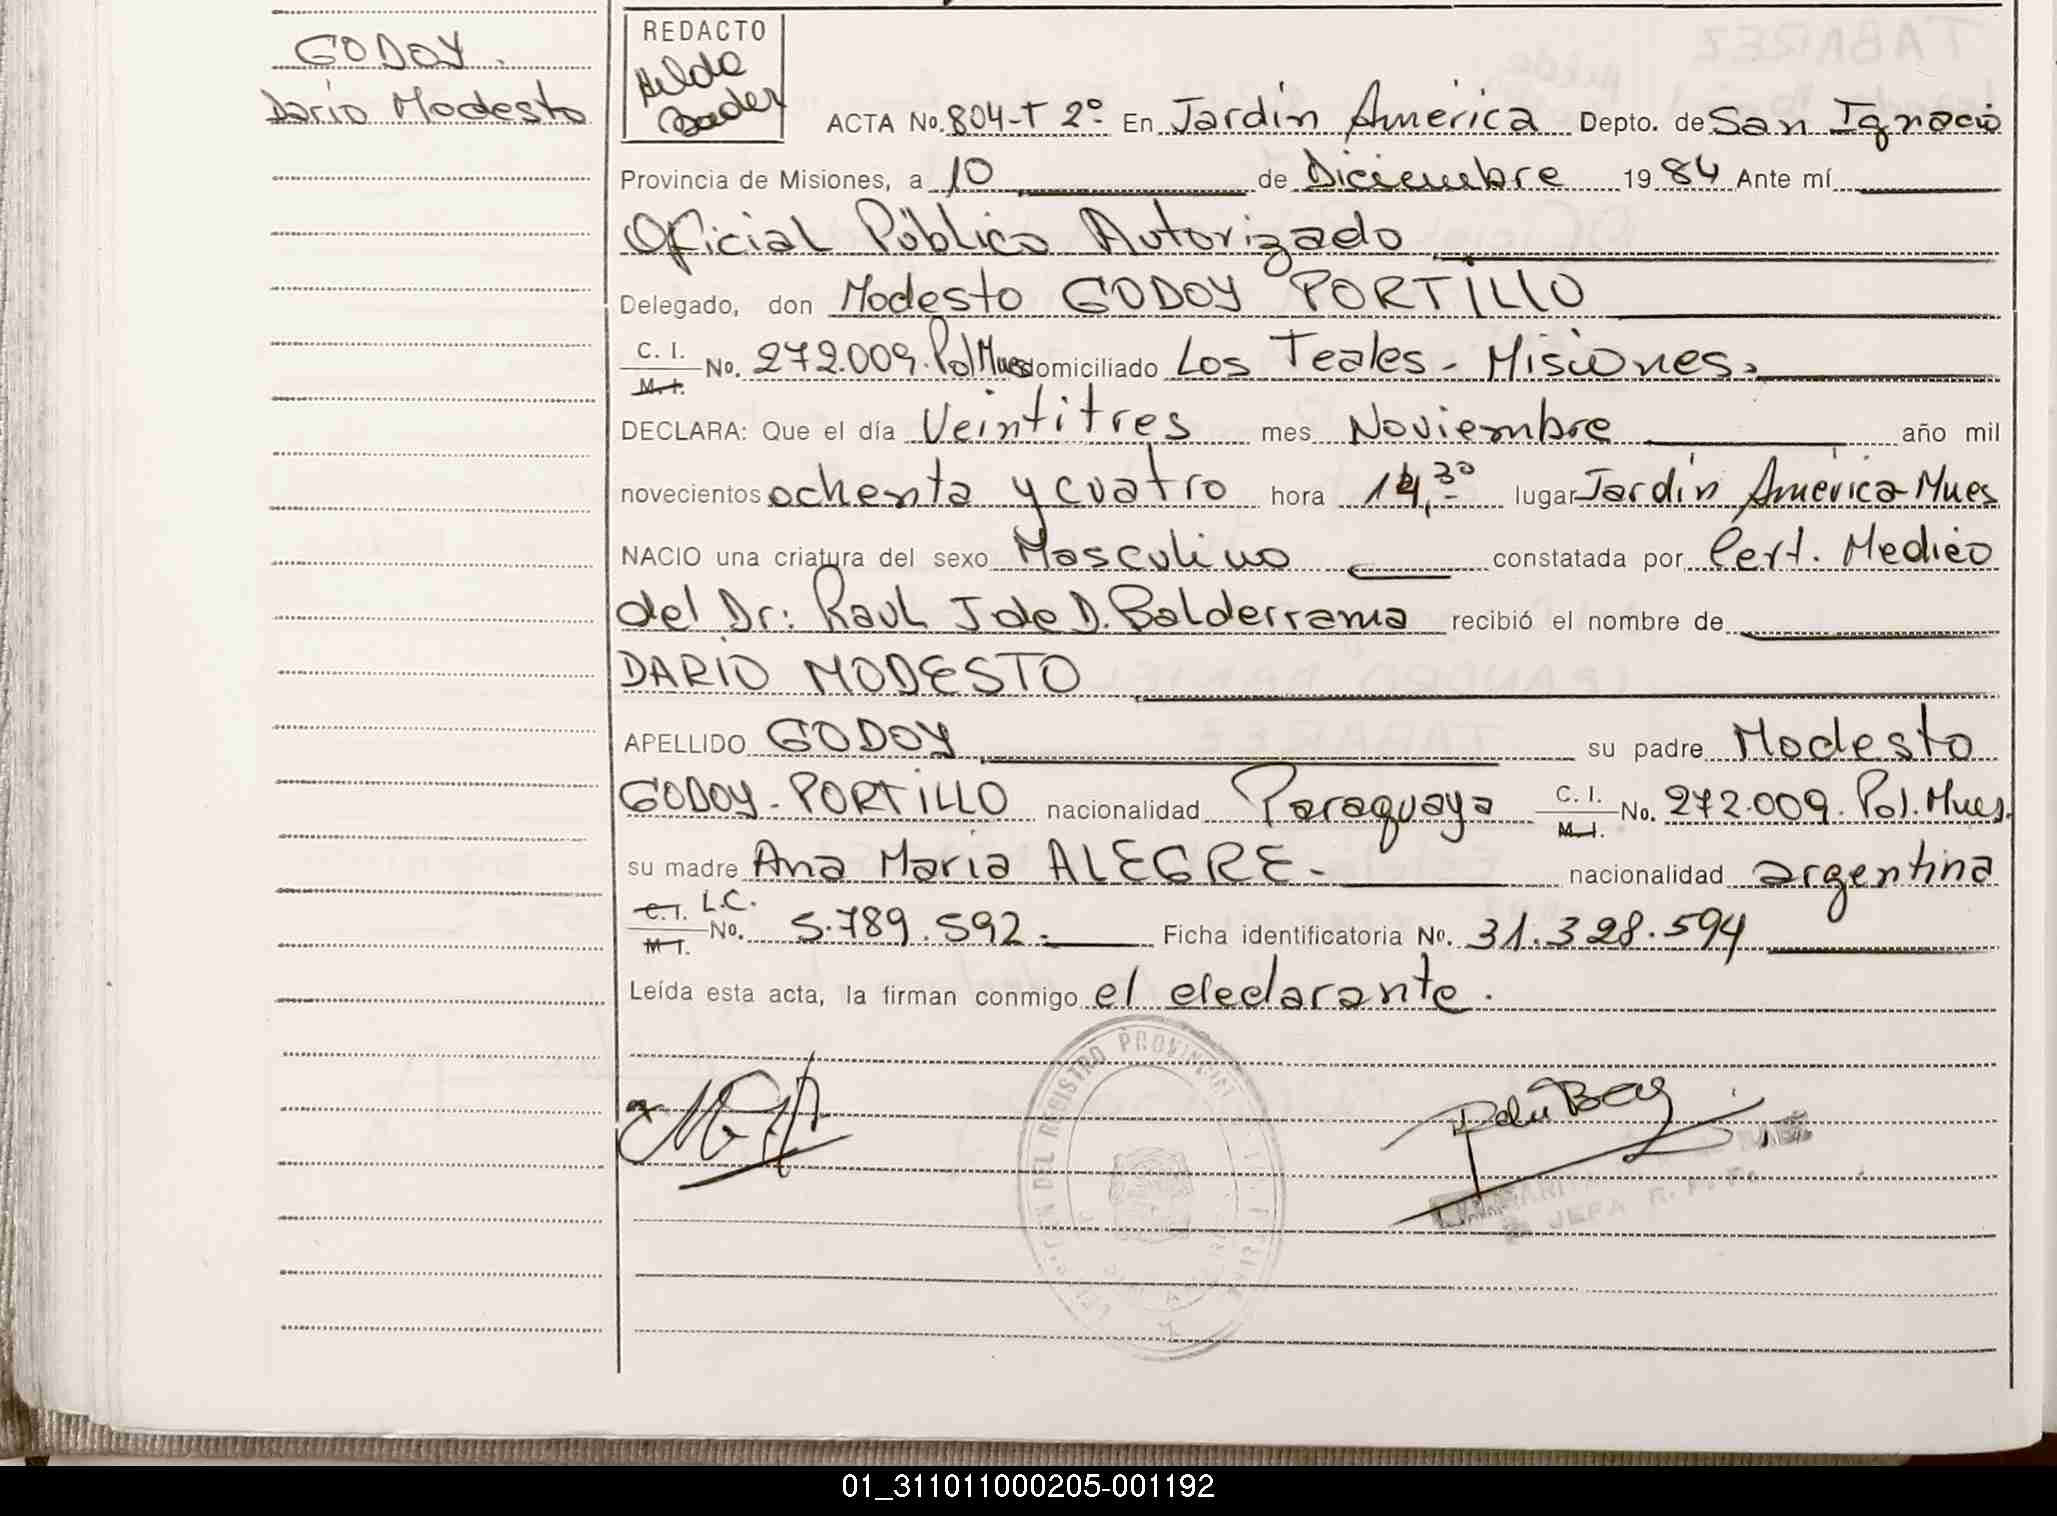 GODOY.
Darío Modesto
REDACTO
Hilda
ACTA No. 804-T 2º En Jardín América Depto. de San Ignacio
Provincia de Misiones, a 10 de Diciembre 19 84 Ante mí
Oficial Público Autorizado
Delegado, don Modesto GODOY PORTILLO
C. I. M. I. No. 272.009. Pol Mnes domiciliado Los Teales - Misiones.
DECLARA: Que el día Veintitres mes Noviembre año mil
novecientos ochenta y cuatro hora 14,30 lugar Jardín América-Mnes
NACIO una criatura del sexo Masculino constatada por Cert. Medico
del Dr: Raul J de D. Balderrama recibió el nombre de
DARIO MODESTO
APELLIDO GODOY su padre Modesto
GODOY-PORTILLO nacionalidad Paraguaya C. I. M. I. No. 272.009. Pol. Mnes.
su madre Ana Maria ALEGRE.- nacionalidad argentina
C. I. L.C. M I. No. 5.789.592.- Ficha identificatoria No. 31.328.594
Leída esta acta, la firman conmigo el declarante.
DEL REGISTRO PROVINCIAL
JEFA R. P. P.
01_311011000205-001192